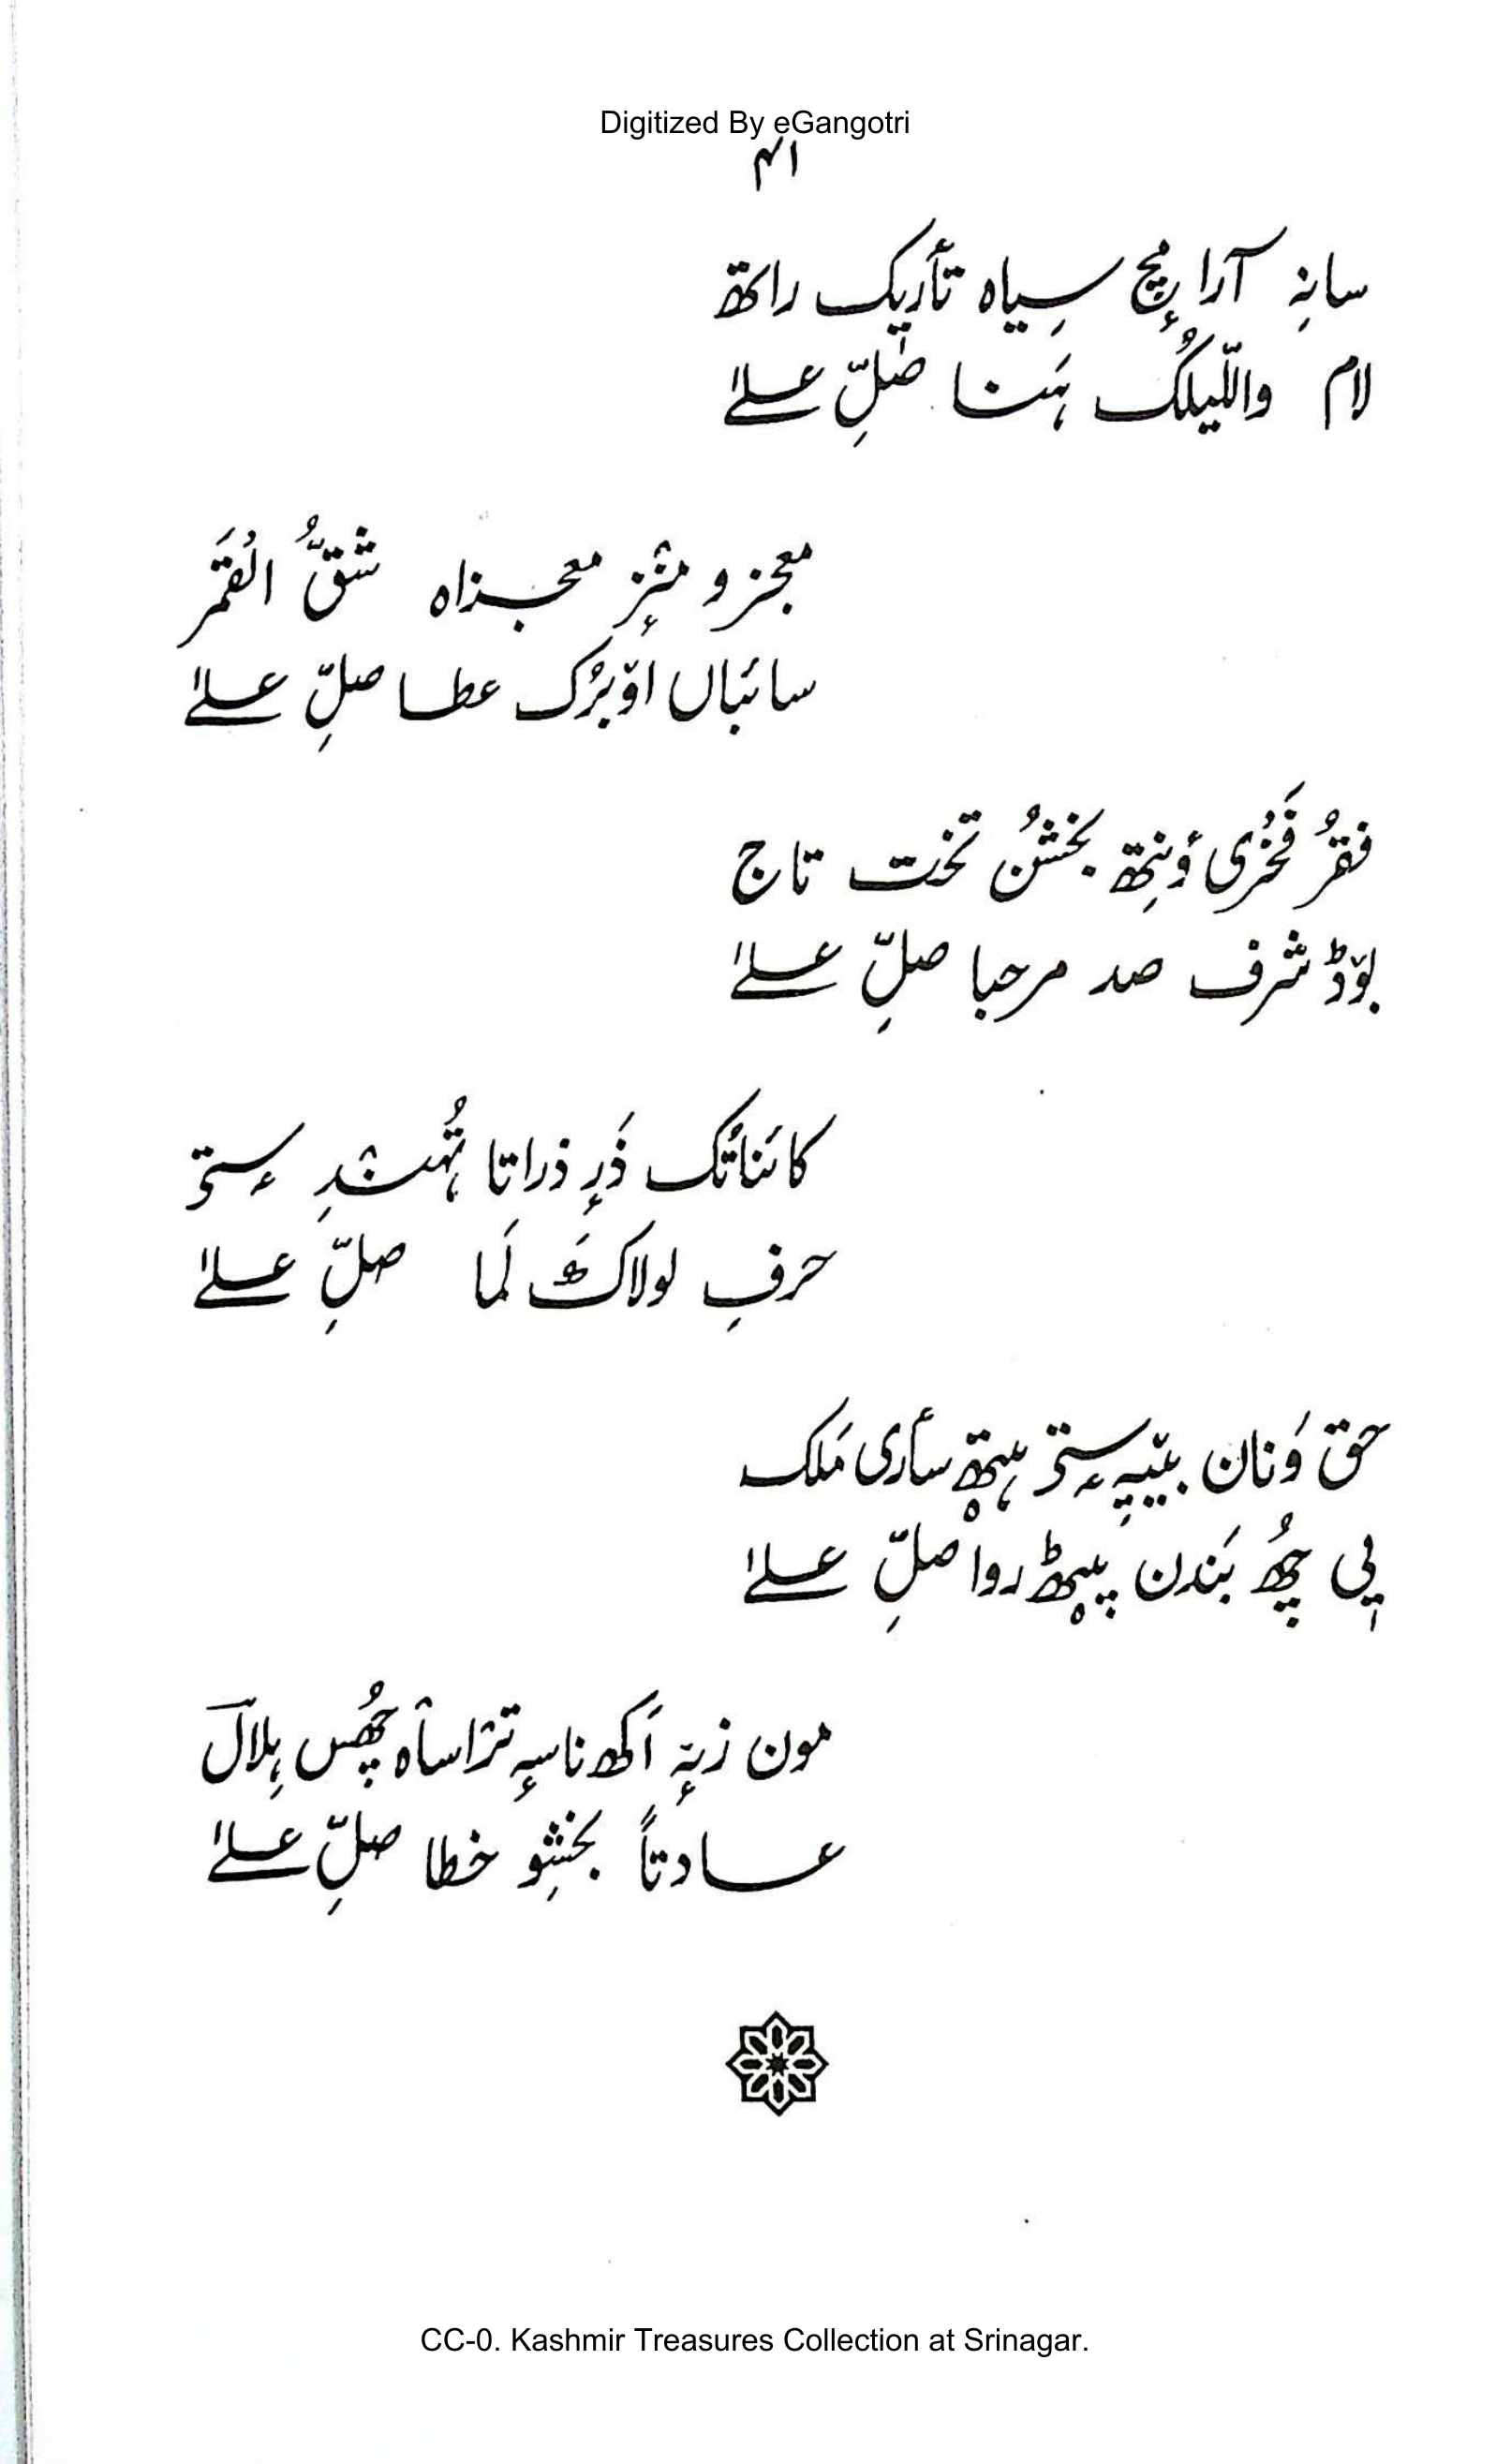 Digitized By eGangotri
۴۱
سانِہ آرا مِچ سِیاہ تأریک راتھ
لام والّیلُک ہَنا صلِّ علےٰ
معجزو منٛزٕ معجزاہ شقُّ القَمَر
سائباں اوٚبرُک عطا صلِّ علےٰ
فقرُ فَخری وٕنِتھ بخشُن تخت تاج
بوٚڈ شرف صد مرحبا صلِّ علےٰ
کائناتُک ذَرٕ ذراتا تُہنٛدِ سٕتۍ
حرفِ لولاکَ لَما صلِّ علےٰ
حق وَنان بییہِ سٕتۍ ہیتھ سأری مَلک
یی چھُ بَندن پیٚٹھ روا صلِّ علےٰ
مون زیہٕ اَکھ ناسہٕ ترٛاساہ چھُس ہِلالؔ
عادتاً بخشِو خطا صلِّ علےٰ
CC-0. Kashmir Treasures Collection at Srinagar.